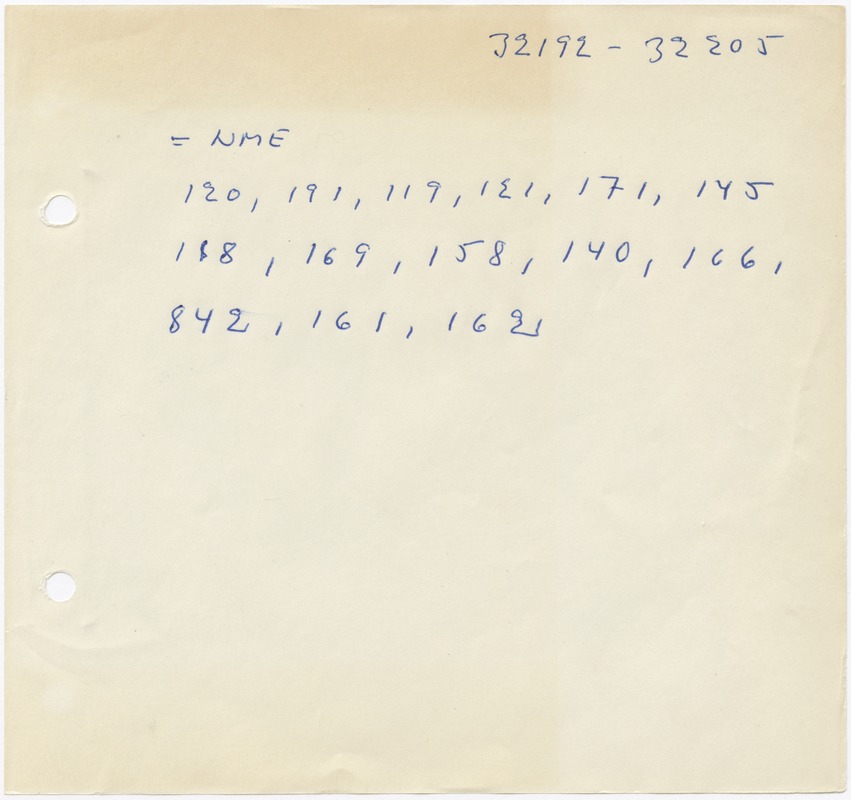 32192 - 32205
= NME
120, 191, 119, 121, 171, 145
, 169, 158, 140, 166,
842, 161, 162